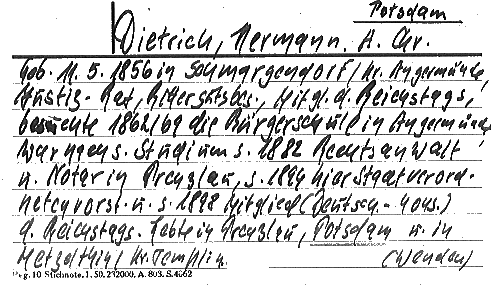 Potsdam
Dietrich, Hermann. A. Chr.
Geb. 11. 5. 1856 in Schmargendorf, Kr. Angermünde,
Justiz-Rat, Rittergutsbes., Mitgl. d. Reichstags,
besuchte 1862/69 die Bürgerschule in Angermünde,
s. Studium s. 1882 Rechtsanwalt
u. Notar in Prenzlau, s. 1894 hier Stadtverord-
netenvorst. u. s. 1898 Mitglied (Deutsch-kons.)
d. Reichstags. Lebte in Prenzlau, Potsdam u. in
Metzelthin, Kr. Templin.
(Wendou)
Prg. 10 Stichnote. 1. 50. 232000. A. 803. S. 4062